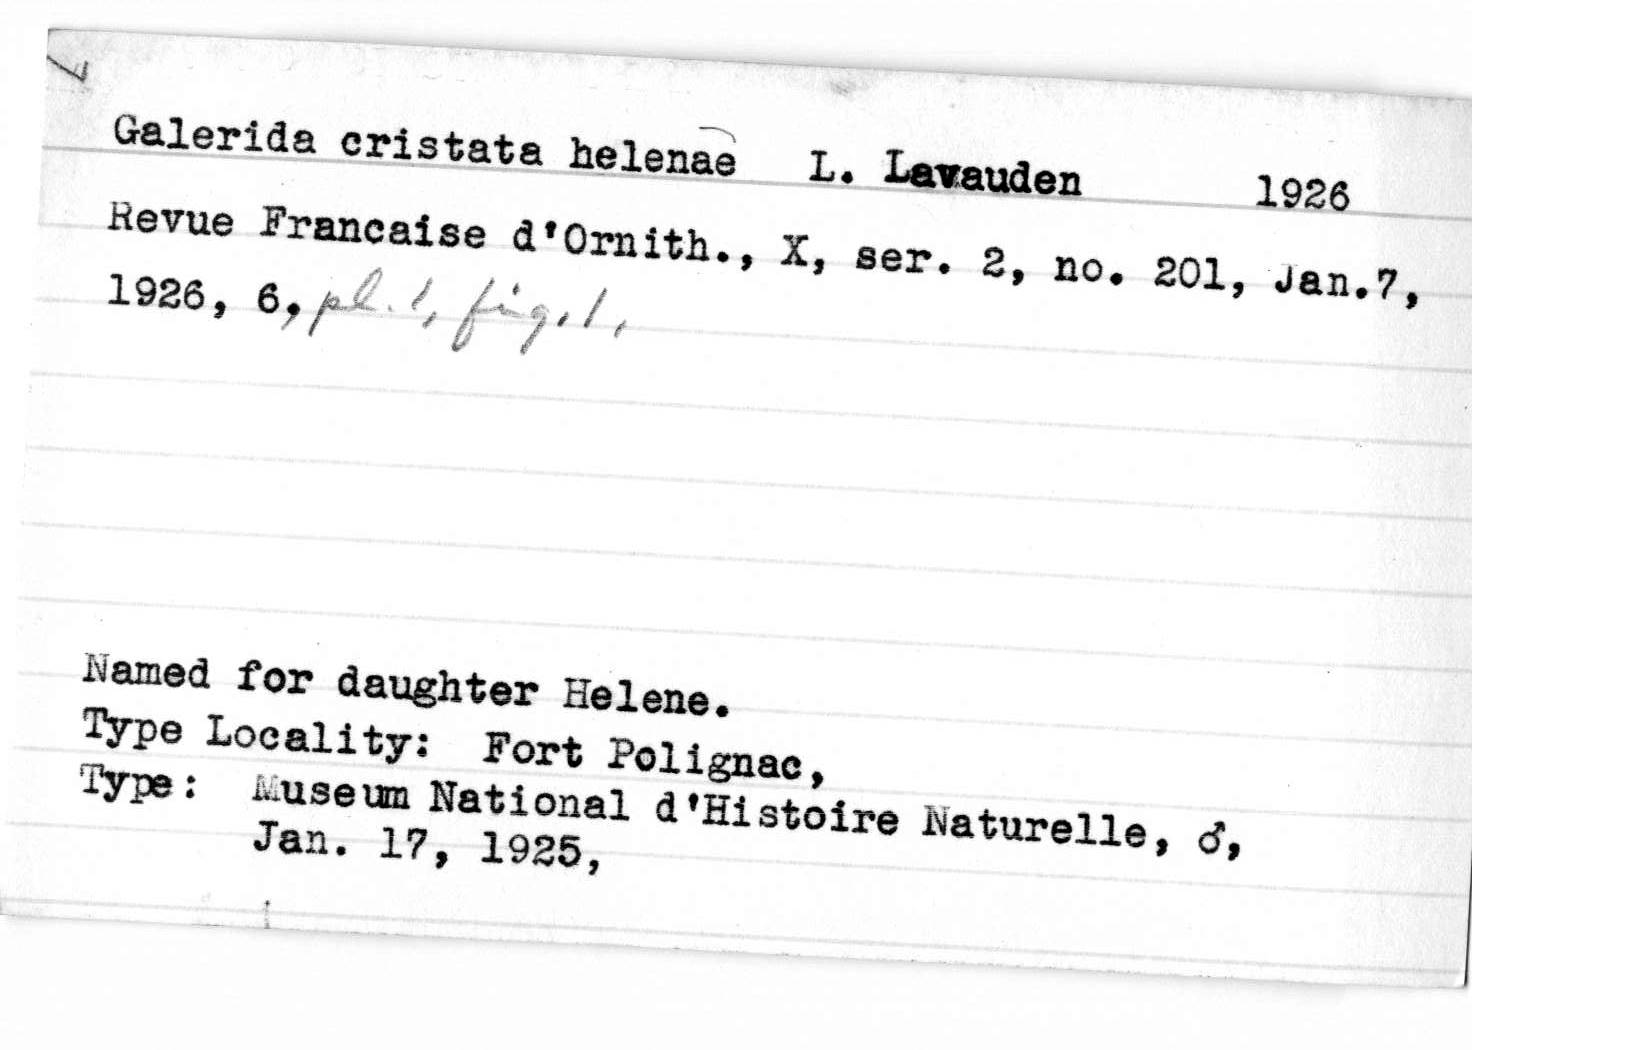 Galerida cristata helenae L. Lavauden 1926
Revue Francaise d'Ornith., X, ser. 2, no. 201, Jan.7,
1926, 6, pl. 1, fig. 1,
Named for daughter Helene.
Type Locality: Fort Polignac,
Type: Museum National d'Histoire Naturelle, ♂,
Jan. 17, 1925,